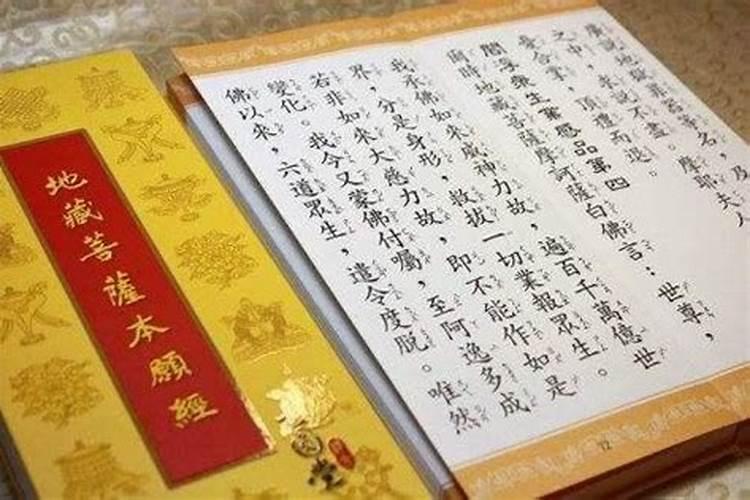 地藏菩薩本願經
廣說地獄罪器等名，及
之中，求說不盡。摩耶夫人
憂合掌，頂禮而退。
閻浮眾生業感品第四
爾時地藏菩薩摩訶薩白佛言：世尊，
我承佛如來威神力故，遍百千萬億世
界，分是身形，救拔一切業報眾生。
若非如來大慈力故，即不能作如是
變化。我今又蒙佛付囑，至阿逸多成
佛以來，六道眾生，遣令度脫。唯然
12